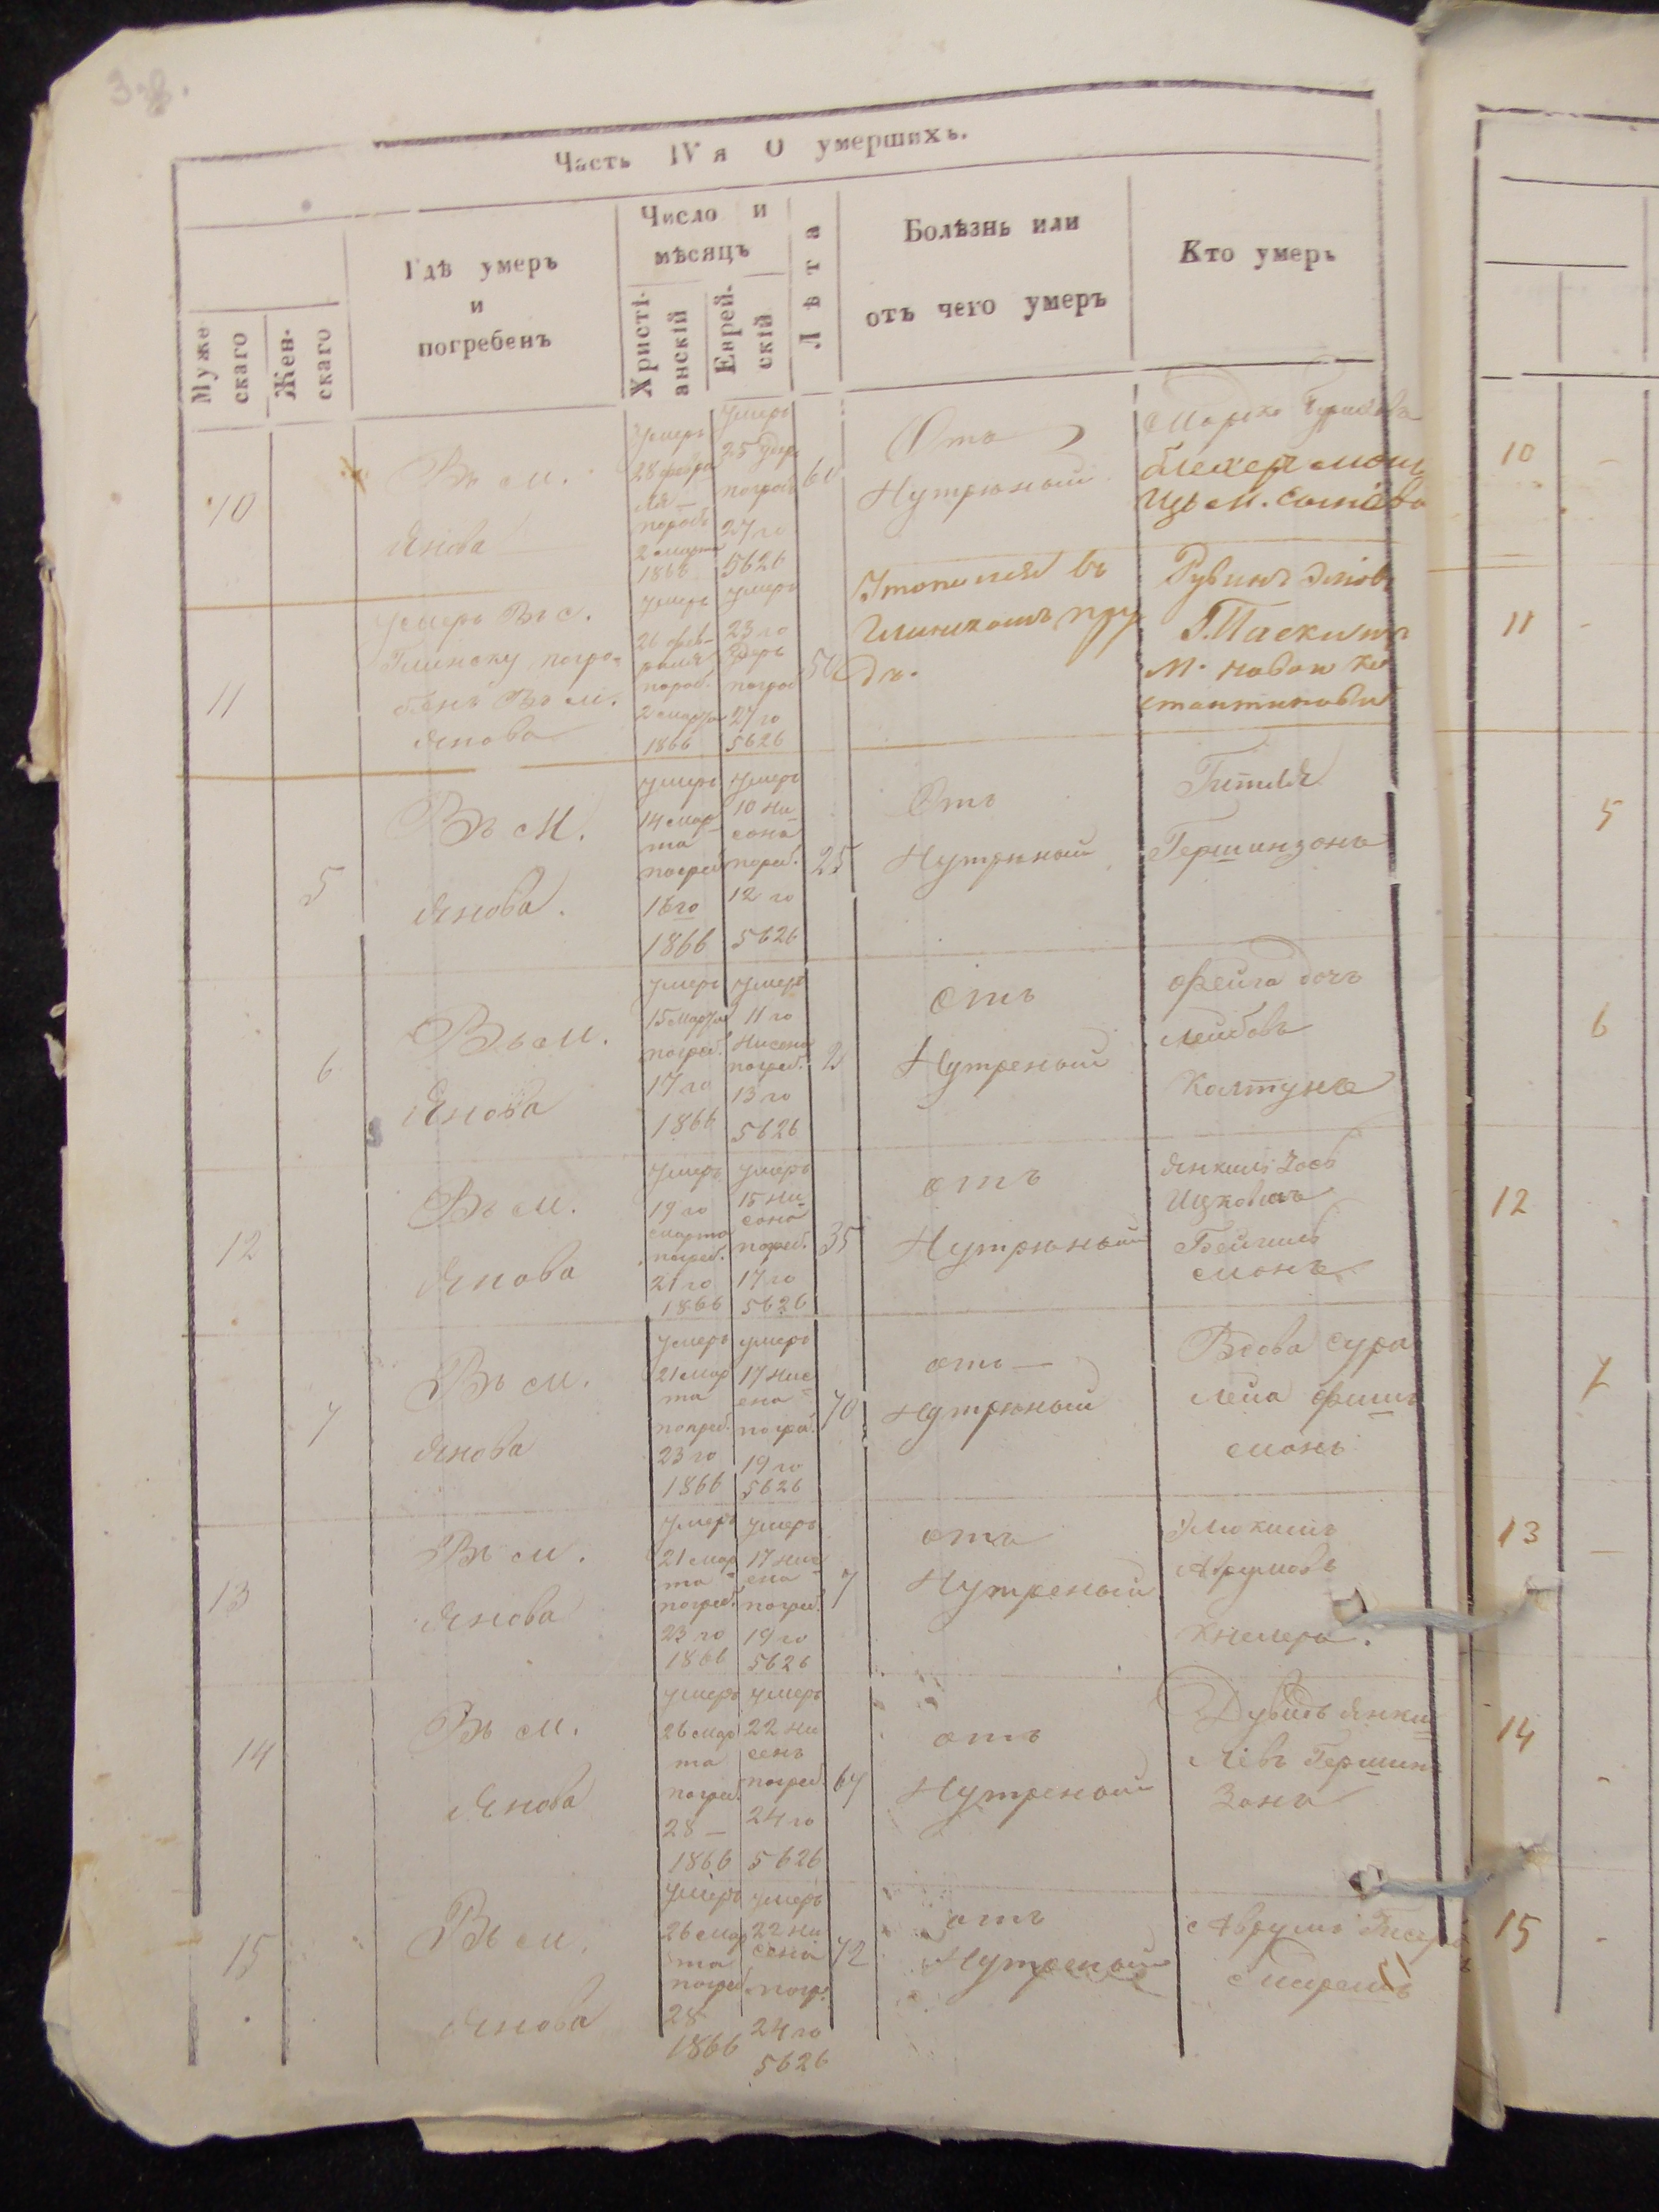 Часть IV я О умершихъ.
Муже
скаго
Жен-
скаго
Гдѣ умеръ
и
погребенъ
Число и
мѣсяцъ
Христі-
анскій
Еврей-
скій
Лѣта
Болѣзнь или
отъ чего умеръ
Кто умеръ
10
Въ м.
Янова
умеръ
28 февра
ля
погреб
2 марта
1866
умеръ
25 Адера
погреб
27 го
5626
60
Отъ
Нутрюный
Мордко
11
умеръ Въ с.
Глинску погре
бенъ Въ м.
Янова
умеръ
26 фев
раля
погреб.
2 марта
1866
умеръ
23 го
Адеръ
погреб
27 го
5626
50
Утопился въ
пру
дъ.
Рувинъ
М. новои Кон
стантинови
5
Въ М.
Янова.
умеръ
14 мар
та
погреб
16 го
1866
умеръ
10 Ни
сона
погреб.
12 го
5626
25
Отъ
Нутрюный
Гитля
Гершинзонъ
6
Въ м.
Янова
умеръ
15 марта
погреб.
17 го
1866
умеръ
11 го
Нисена
погреб.
13 го
5626
2
отъ
Нутреный
Фейга дочъ
Лейбовъ
Колтунъ
12
Въ м.
Янова
умеръ
19 го
марта
погреб.
21 го
1866
умеръ
15 Ни
сона
погреб.
17 го
5626
35
отъ
Нутрюный
Янкиль
Ицковичъ
монъ
7
Въ м.
Янова
умеръ
21 мар
та
погреб.
23 го
1866
умеръ
17 Нис
ена
погреб.
19 го
5626
70
отъ
Нутрюный
Вдова Сура
Леиа Фиш
монъ
13
Въ м.
Янова
умеръ
21 мар
та
погреб.
23 го
1866
умеръ
17 Нис
ена
погреб.
19 го
5626
7
отъ
Нутреный
Аврумовъ
Кнелеръ.
14
Въ м.
Янова
умеръ
26 мар
та
погреб.
28
1866
умеръ
22 Ни
сенъ
погреб.
24 го
5626
67
отъ
Нутреный
Дувидъ Янки
левъ Гершин
зонъ
15
Въ м.
Янова
умеръ
26 мар
та
погреб
28
1866
умеръ
22 Ни
сена
погр.
24 го
5626
72
отъ
Нутреный
Аврумъ
10
11
5
6
12
7
13
14
15